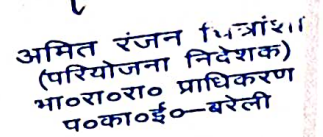 अमित रंजन चित्रांशी
(परियोजना निदेशक)
भा०रा०रा० प्राधिकरण
प०का०ई०–बरेली